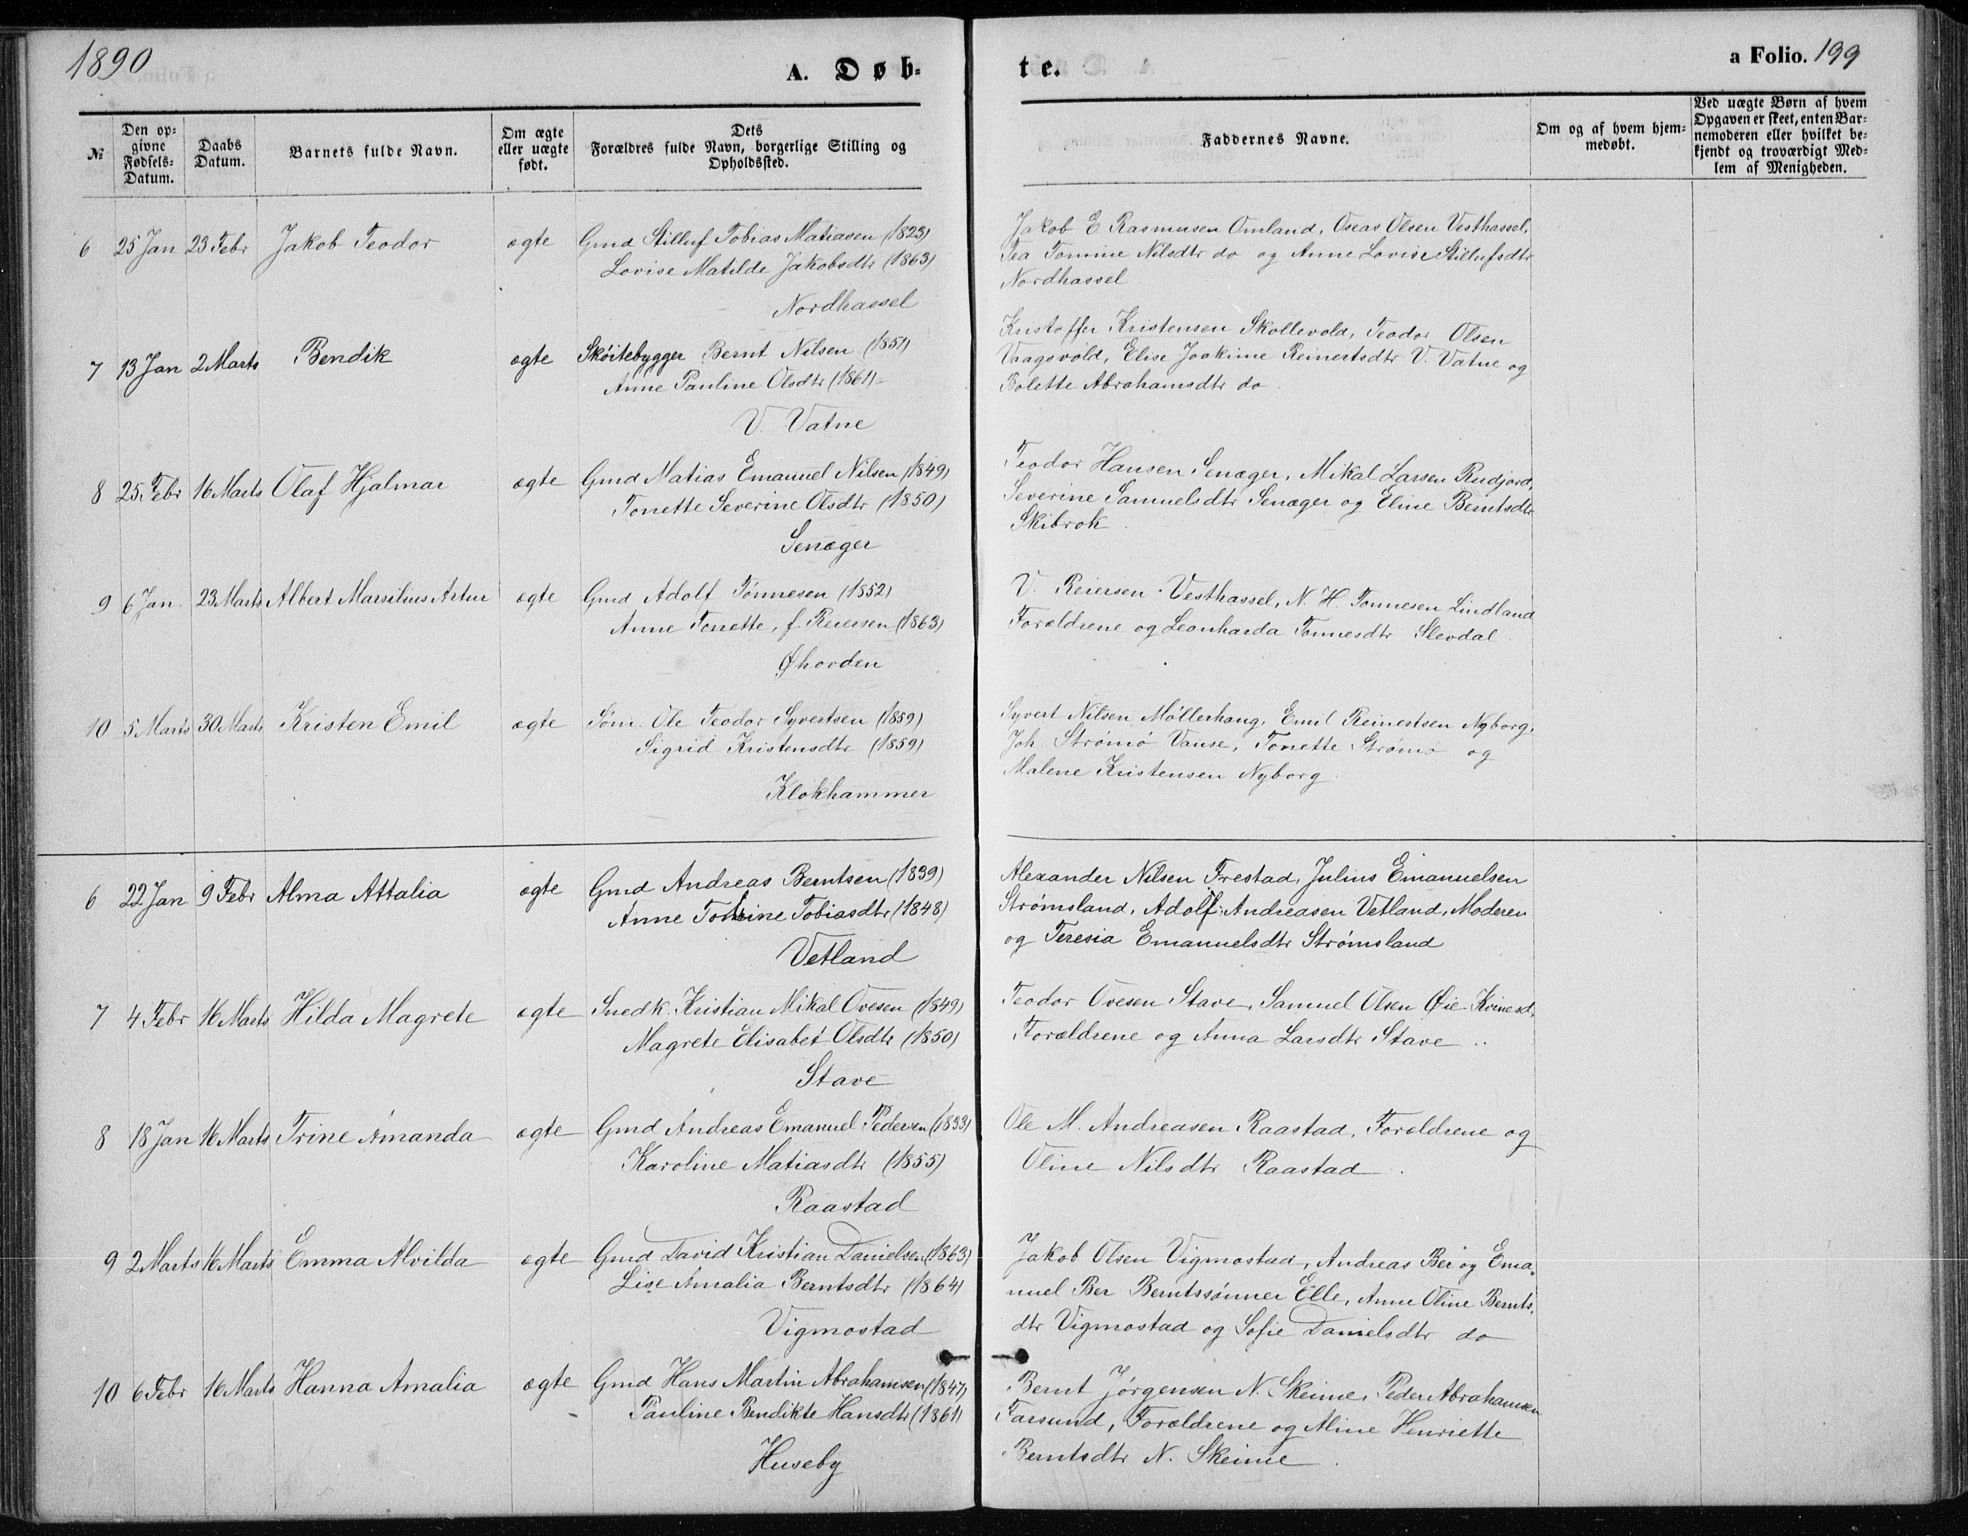 1890
A. Døb-
te.
a Folio. 199
№
Den op-
givne
Fødsels-
Datum.
Daabs
Datum.
Barnets fulde Navn.
Om ægte
eller uægte
født.
Dets
Forældres fulde Navn, borgerlige Stilling og
Opholdssted.
Faddernes Navne.
Om og af hvem hjem-
medøbt.
Ved uægte Børn af hvem
Opgaven er skeet, enten Bar-
nemoderen eller hvilket be-
kjendt og troværdigt Med-
lem af Menigheden.
6 25 Jan 23 Febr Jakob Teodor ægte Gmd Stilluf Tobias Matiasen (1823)
Lovise Matilde Jakobsdtr (1863)
Nordhassel
Jakob E Rasmusen Omland, Oseas Olsen Vesthassel,
Tea Tomine Nilsdtr do og Anne Lovise Stillufsdtr
Nordhassel
7 13 Jan 2 Marts Bendik ægte Skøitebygger Bernt Nilsen (1851)
Anne Pauline Olsdtr (1861)
V. Vatne
Kristoffer Kristensen Skollevold, Teodor Olsen
Vaagsvold, Elise Joakime Reinertsdtr V. Vatne og
Bolette Abrahamsdtr do
8 25 Febr 16 Marts Olaf Hjalmar ægte Gmd Matias Emanuel Nilsen (1849)
Tonette Severine Olsdtr (1850)
Senæger
Teodor Hansen Senæger, Mikal Larsen Rudjord,
Severine Samuelsdtr Senæger og Eline Berntsdtr
Skibrok.
9 6 Jan 23 Marts Albert Marsilius Artur ægte Gmd Adolf Tønnesen (1852)
Anne Tonette, f. Reiersen (1863)
Øhorden
V. Reiersen Vesthassel, N. H. Tønnesen Lindland
Forældrene og Leonharda Tønnesdtr Slevdal.
10 5 Marts 30 Marts Kristen Emil ægte Søm. Ole Teodor Syvertsen (1859)
Sigrid Kristensdtr (1859)
Klokhammer
Syvert Nilsen Møllerhaug, Emil Reinertsen Nyborg,
Joh. Strømø Vanse, Tonette Strømø og
Malene Kristensen Nyborg
6 22 Jan 9 Febr Alma Attalia ægte Gmd Andreas Berntsen (1839)
Anne Tomine Tobiasdtr (1848)
Vetland
Alexander Nilsen Frestad, Julius Emanuelsen
Strømsland, Adolf Andreasen Vetland, Moderen
og Teresia Emanuelsdtr Strømsland
7 4 Febr 16 Marts Hilda Magrete ægte Snedk. Kristian Mikal Ovesen (1849)
Magrete Elisabet Olsdtr (1850)
Stave
Teodor Ovesen Stave, Samuel Olsen Øie Kvinesd,
Forældrene og Anna Larsdtr Stave
8 18 Jan 16 Marts Trine Amanda ægte Gmd Andreas Emanuel Pedersen (1853)
Karoline Matiasdtr (1855)
Raastad
Ole M. Andreasen Raastad, Forældrene og
Oline Nilsdtr Raastad.
9 2 Marts 16 Marts Emma Alvilda ægte Gmd David Kristian Danielsen (1863)
Lise Amalia Berntsdtr (1864)
Vigmostad
Jakob Olsen Vigmostad, Andreas Ber og Ema-
nuel Ber Berntssønner Elle, Anne Oline Bernts-
dtr Vigmostad og Sofie Danielsdtr do
10 6 Febr 16 Marts Hanna Amalia ægte Gmd Hans Martin Abrahamsen (1847)
Pauline Bendikte Hansdtr (1861)
Huseby
Bernt Jørgensen N. Skeime, Peder Abrahamsen
Farsund, Forældrene og Aline Henriette
Berntsdtr N. Skeime.